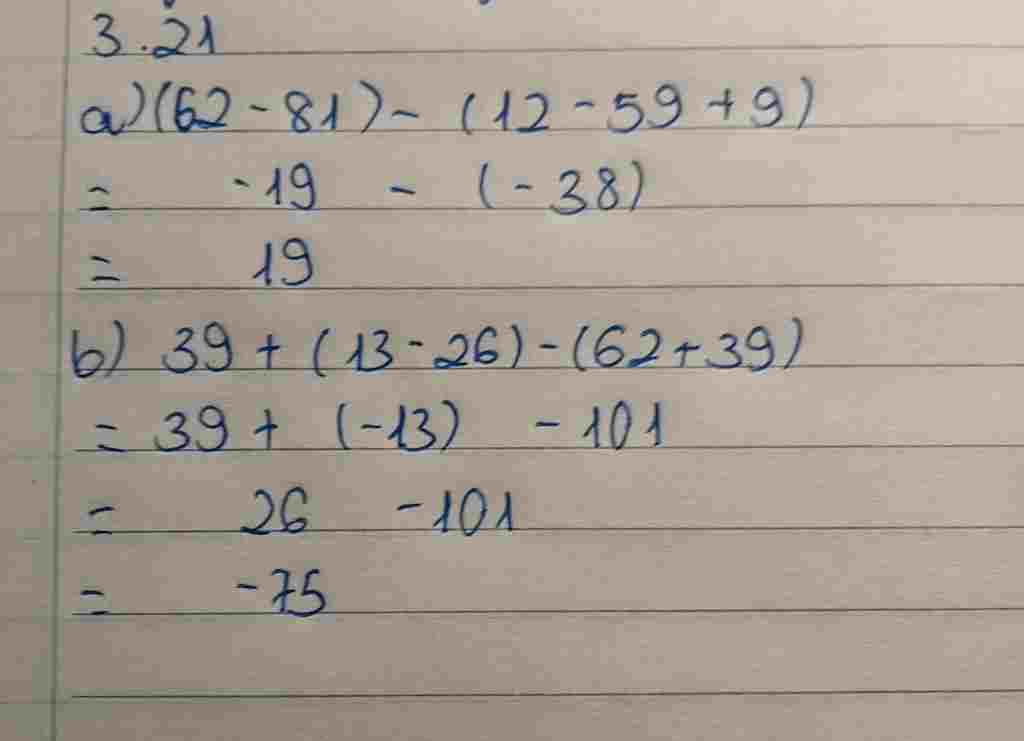 3.21
a) (62 - 81) - (12 - 59 + 9)
= -19 - (-38)
= 19
b) 39 + (13 - 26) - (62 + 39)
= 39 + (-13) - 101
= 26 - 101
= -75